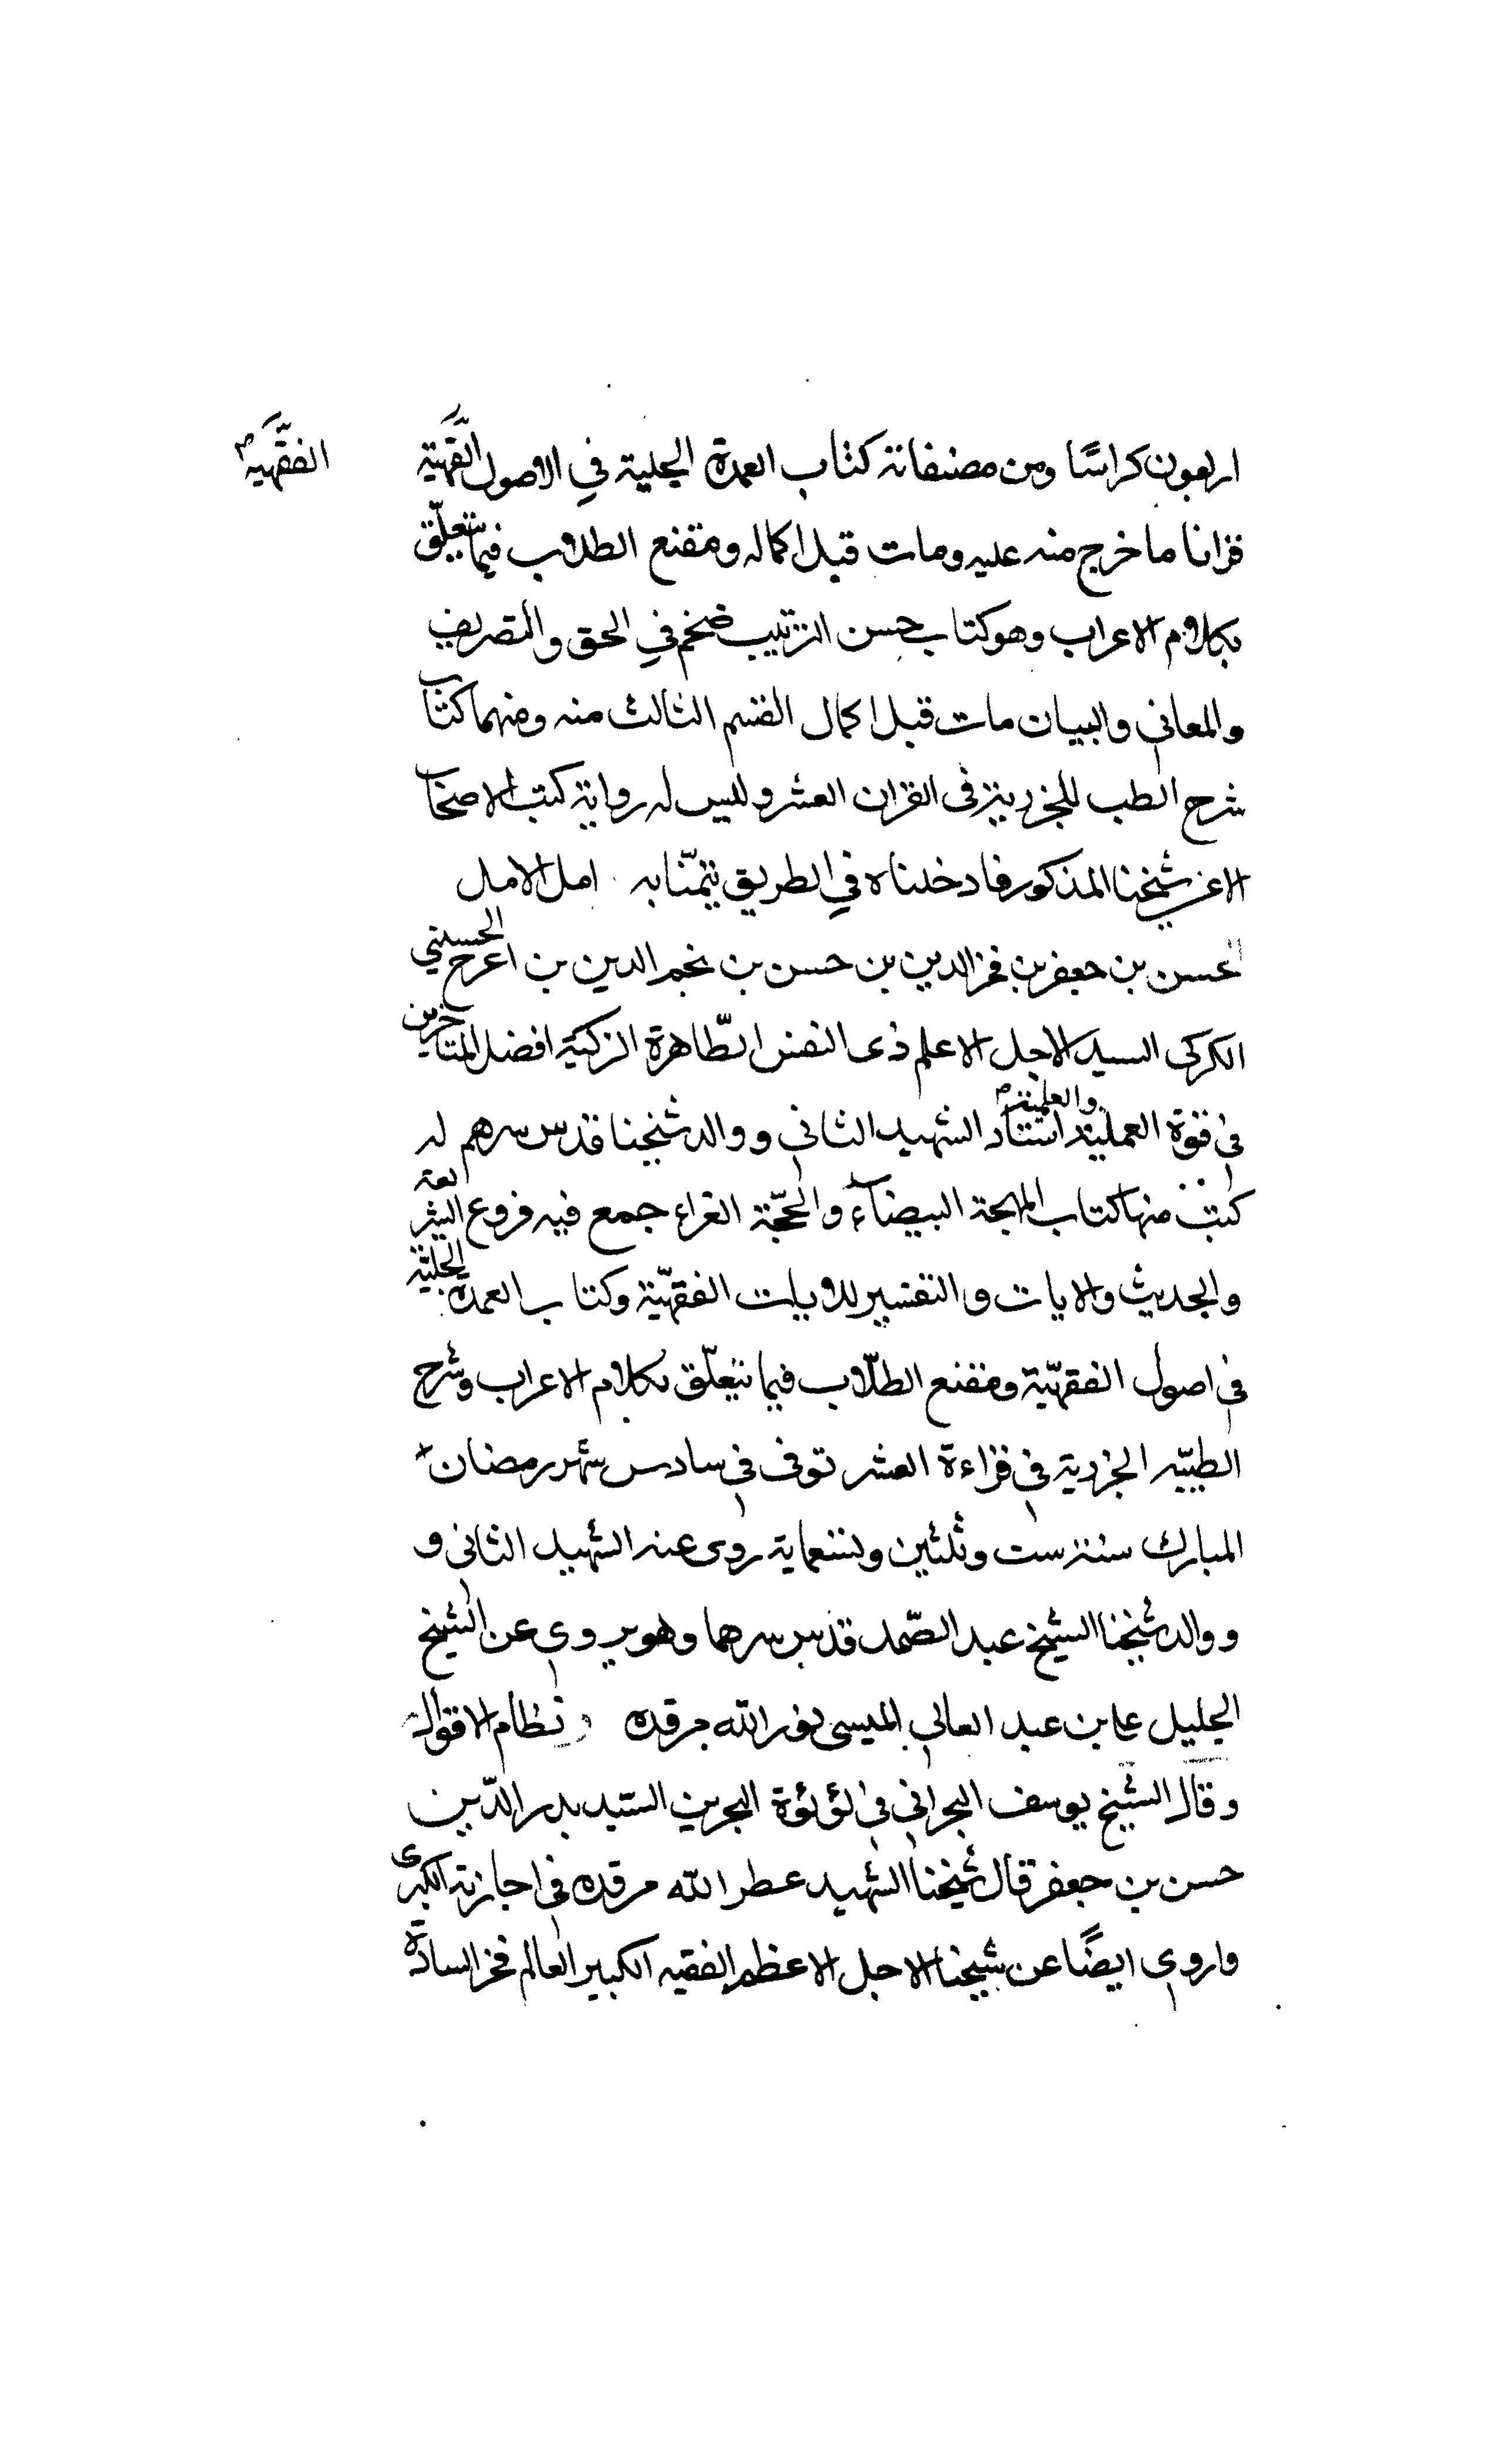 اربعون كراسًا ومن مصنفاته كتاب العمدة الجلية في الاصول القهية
الفقهية
قرانا ما خرج منه عليه ومات قبل اكماله ومقنع الطلاب فيما يتعلّق
بكلام الاعراب وهو كتاب حسن الترتيب ضخم في النحو والتصريف
والمعاني والبيان مات قبل اكمال القسم الثالث منه ومنهما كتاب
شرح الطب للجزرية في القران العشر وليس له رواية كتب الاصحاب
الا عن شيخنا المذكور فادخلناه في الطريق تيمّنا به امل الامل
الحسن بن جعفر بن فخر الدين بن حسن بن نجم الدين بن اعرج الحسيني
الكركى السيد الاجل الاعلم ذى النفس الطّاهرة الزكية افضل المتاخرين
فى قوة العملية والعلمية استاد الشهيد الثانى و والد شيخنا قدس سرهم له
كتب منها كتاب المهجة البيضاء والحجّة الغراء جمع فيه فروع الشريعة
والحديث والايات والتفسير للايات الفقهيّة وكتاب العمدة الجلية
فى اصول الفقهيّة ومقنع الطلّاب فيما يتعلّق بكلام الاعراب وشرح
الطيّبه الجزرية فى قراءة العشر توفى فى سادس شهر رمضان
المبارك سنة ست وثلثين وتسعماية روى عنه الشهيد الثانى و
و والد شيخنا الشيخ عبد الصّمد قدس سرهما وهو يروى عن الشيخ
الجليل على بن عبد العالى الميسى نور الله مرقده نظام الاقوال
وقال الشيخ يوسف البحرانى فى لؤلؤة البحرين السيد بدر الدّين
حسن بن جعفر قال شيخنا الشهيد عطر الله مرقده فى اجازته الكبرى
واروى ايضًا عن شيخنا الاجل الاعظم الفقيه الكبير العالم فخر السادة